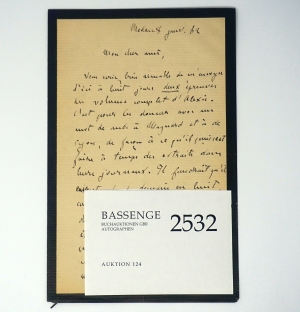 Médan 8 janv. 82
Mon cher ami,
Vous seriez bien aimable de m'envoyer
d'ici à huit jours deux épreuves
en volume complet d'Alexis.
C'est pour les donner avec un
mot de moi à Magnard et à de
Cyon, de façon à ce qu'ils puissent
faire à temps des extraits dans
leurs journaux. Il faudrait qu'ils
huit
BASSENGE
BUCHAUKTIONEN GBR
AUTOGRAPHEN
2532
AUKTION 124